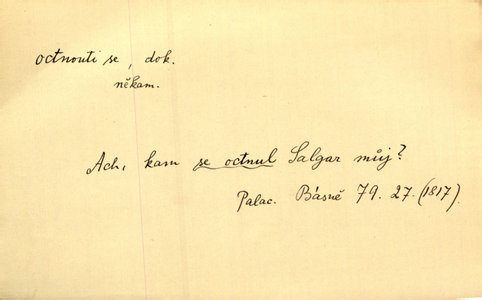 octnouti se, dok.
někam.
Ach, kam se octnul Salgar můj?
Palac. Básně 79. 27. (1817).